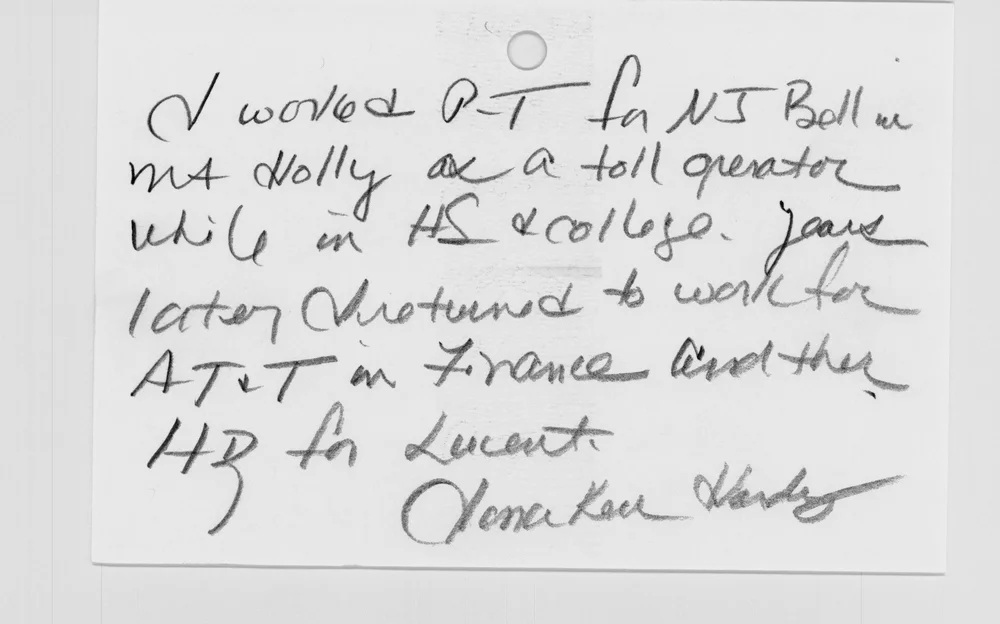 I worked P-T for NJ Bell in
Mt Holly as a toll operator
while in HS & college. Years
later I returned to work for
AT&T in Finance and then
HR for Lucent.
Kerr Hardy